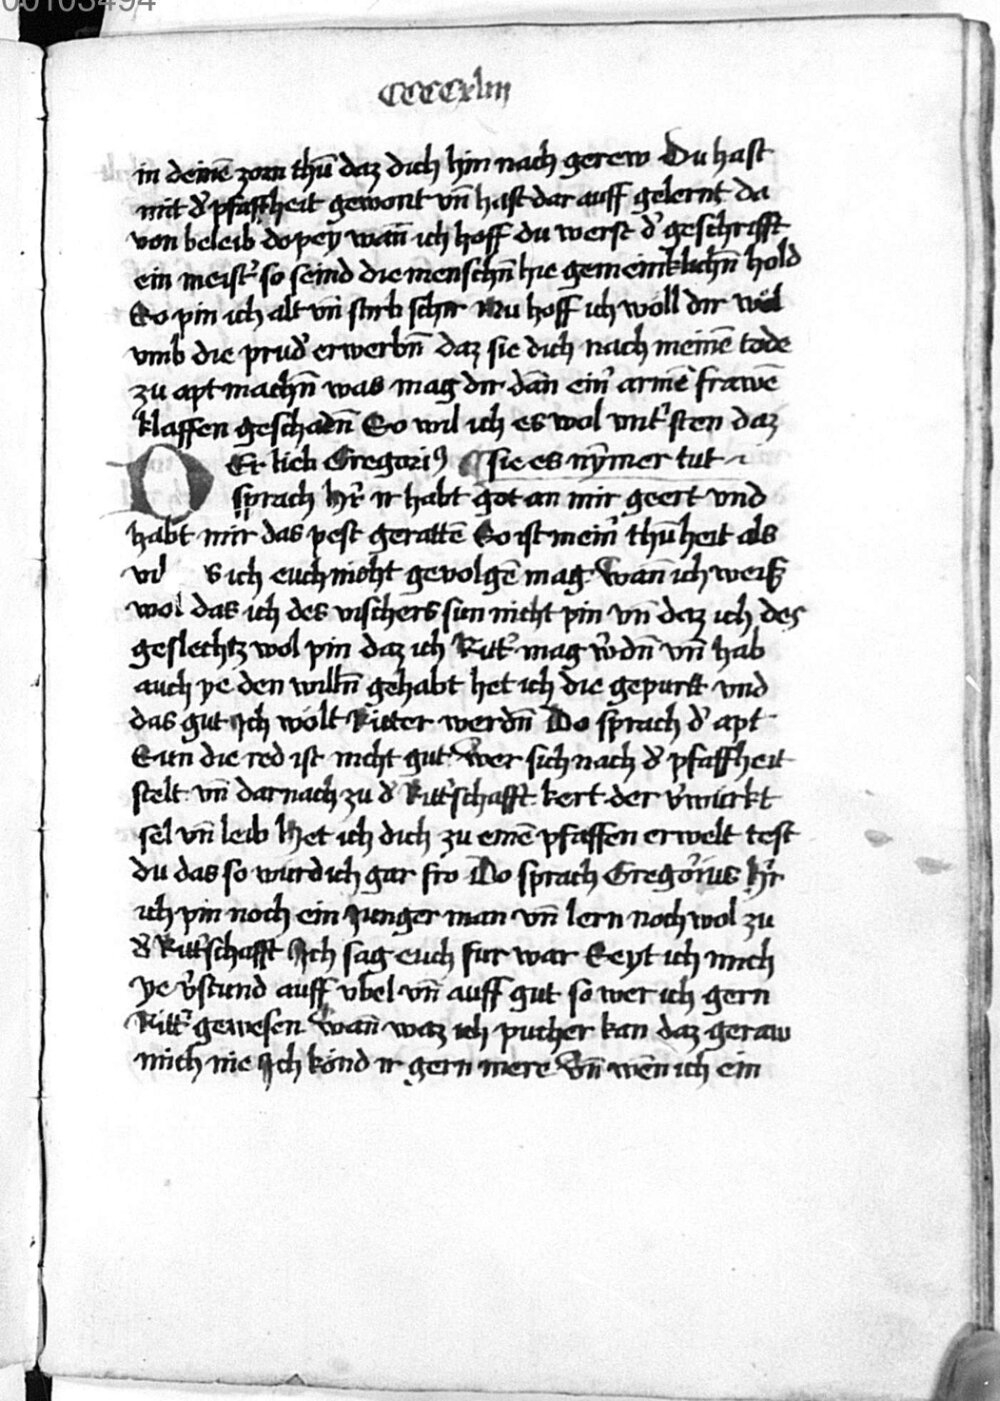 00103494
CCCCxliiij
in deinē zorn thū daz dich hin nach gerew Du hast
mit d' pfaffheit gewont vn̄ hast dar auff gelernt da
von beleib do pey wan̄ ich hoff du werst d' geschrifft
ein meist' so seind die menschn̄ hie gemeinklichn̄ hold
So pin ich alt vn̄ stirb schir Nu hoff ich wöll dir wöl
vmb die prud' erwerbn̄ daz sie dich nach meinē tode
zu apt machn̄ was mag dir dan̄ ein' armē frawē
klaffen geschadn̄ So wil ich es wol vnt'sten daz
DEr lieb Gregori9 sie es nȳmer tut
sprach h'r ir habt got an mir geert vnd
habt mir das pest geratē So ist mein' thūheit als
vil s ich euch nicht gevolgē mag Wan̄ ich weiß
wol das ich des vischers sun nicht pin vn̄ daz ich des
geslechtz wol pin daz ich Ritt' mag w'dn̄ vn̄ hab
auch ye den willn̄ gehabt het ich die gepurtt vnd
das gut Ich wolt Ritter werdn̄ Do sprach d' apt
Sun die red ist nicht gut Wer sich nach d' pfaffheit
stelt vn̄ darnach zu d' Ritt'schafft kert der v'wurkt
sel vn̄ leib Het ich dich zu einē pfaffen erwelt test
du das so wurd ich gar fro Do sprach Gregorius h'r
ich pin noch ein Junger man vn̄ lern noch wol zu
d' Ritt'schafft Ich sag euch fur war Seyt ich mich
ye v'stund auff vbel vn̄ auff gut so wer ich gern
Ritt' gewesen Wan̄ waz ich pucher kan daz geraw
mich nie Ich könd ir gern mere Vn̄ wen̄ ich ein